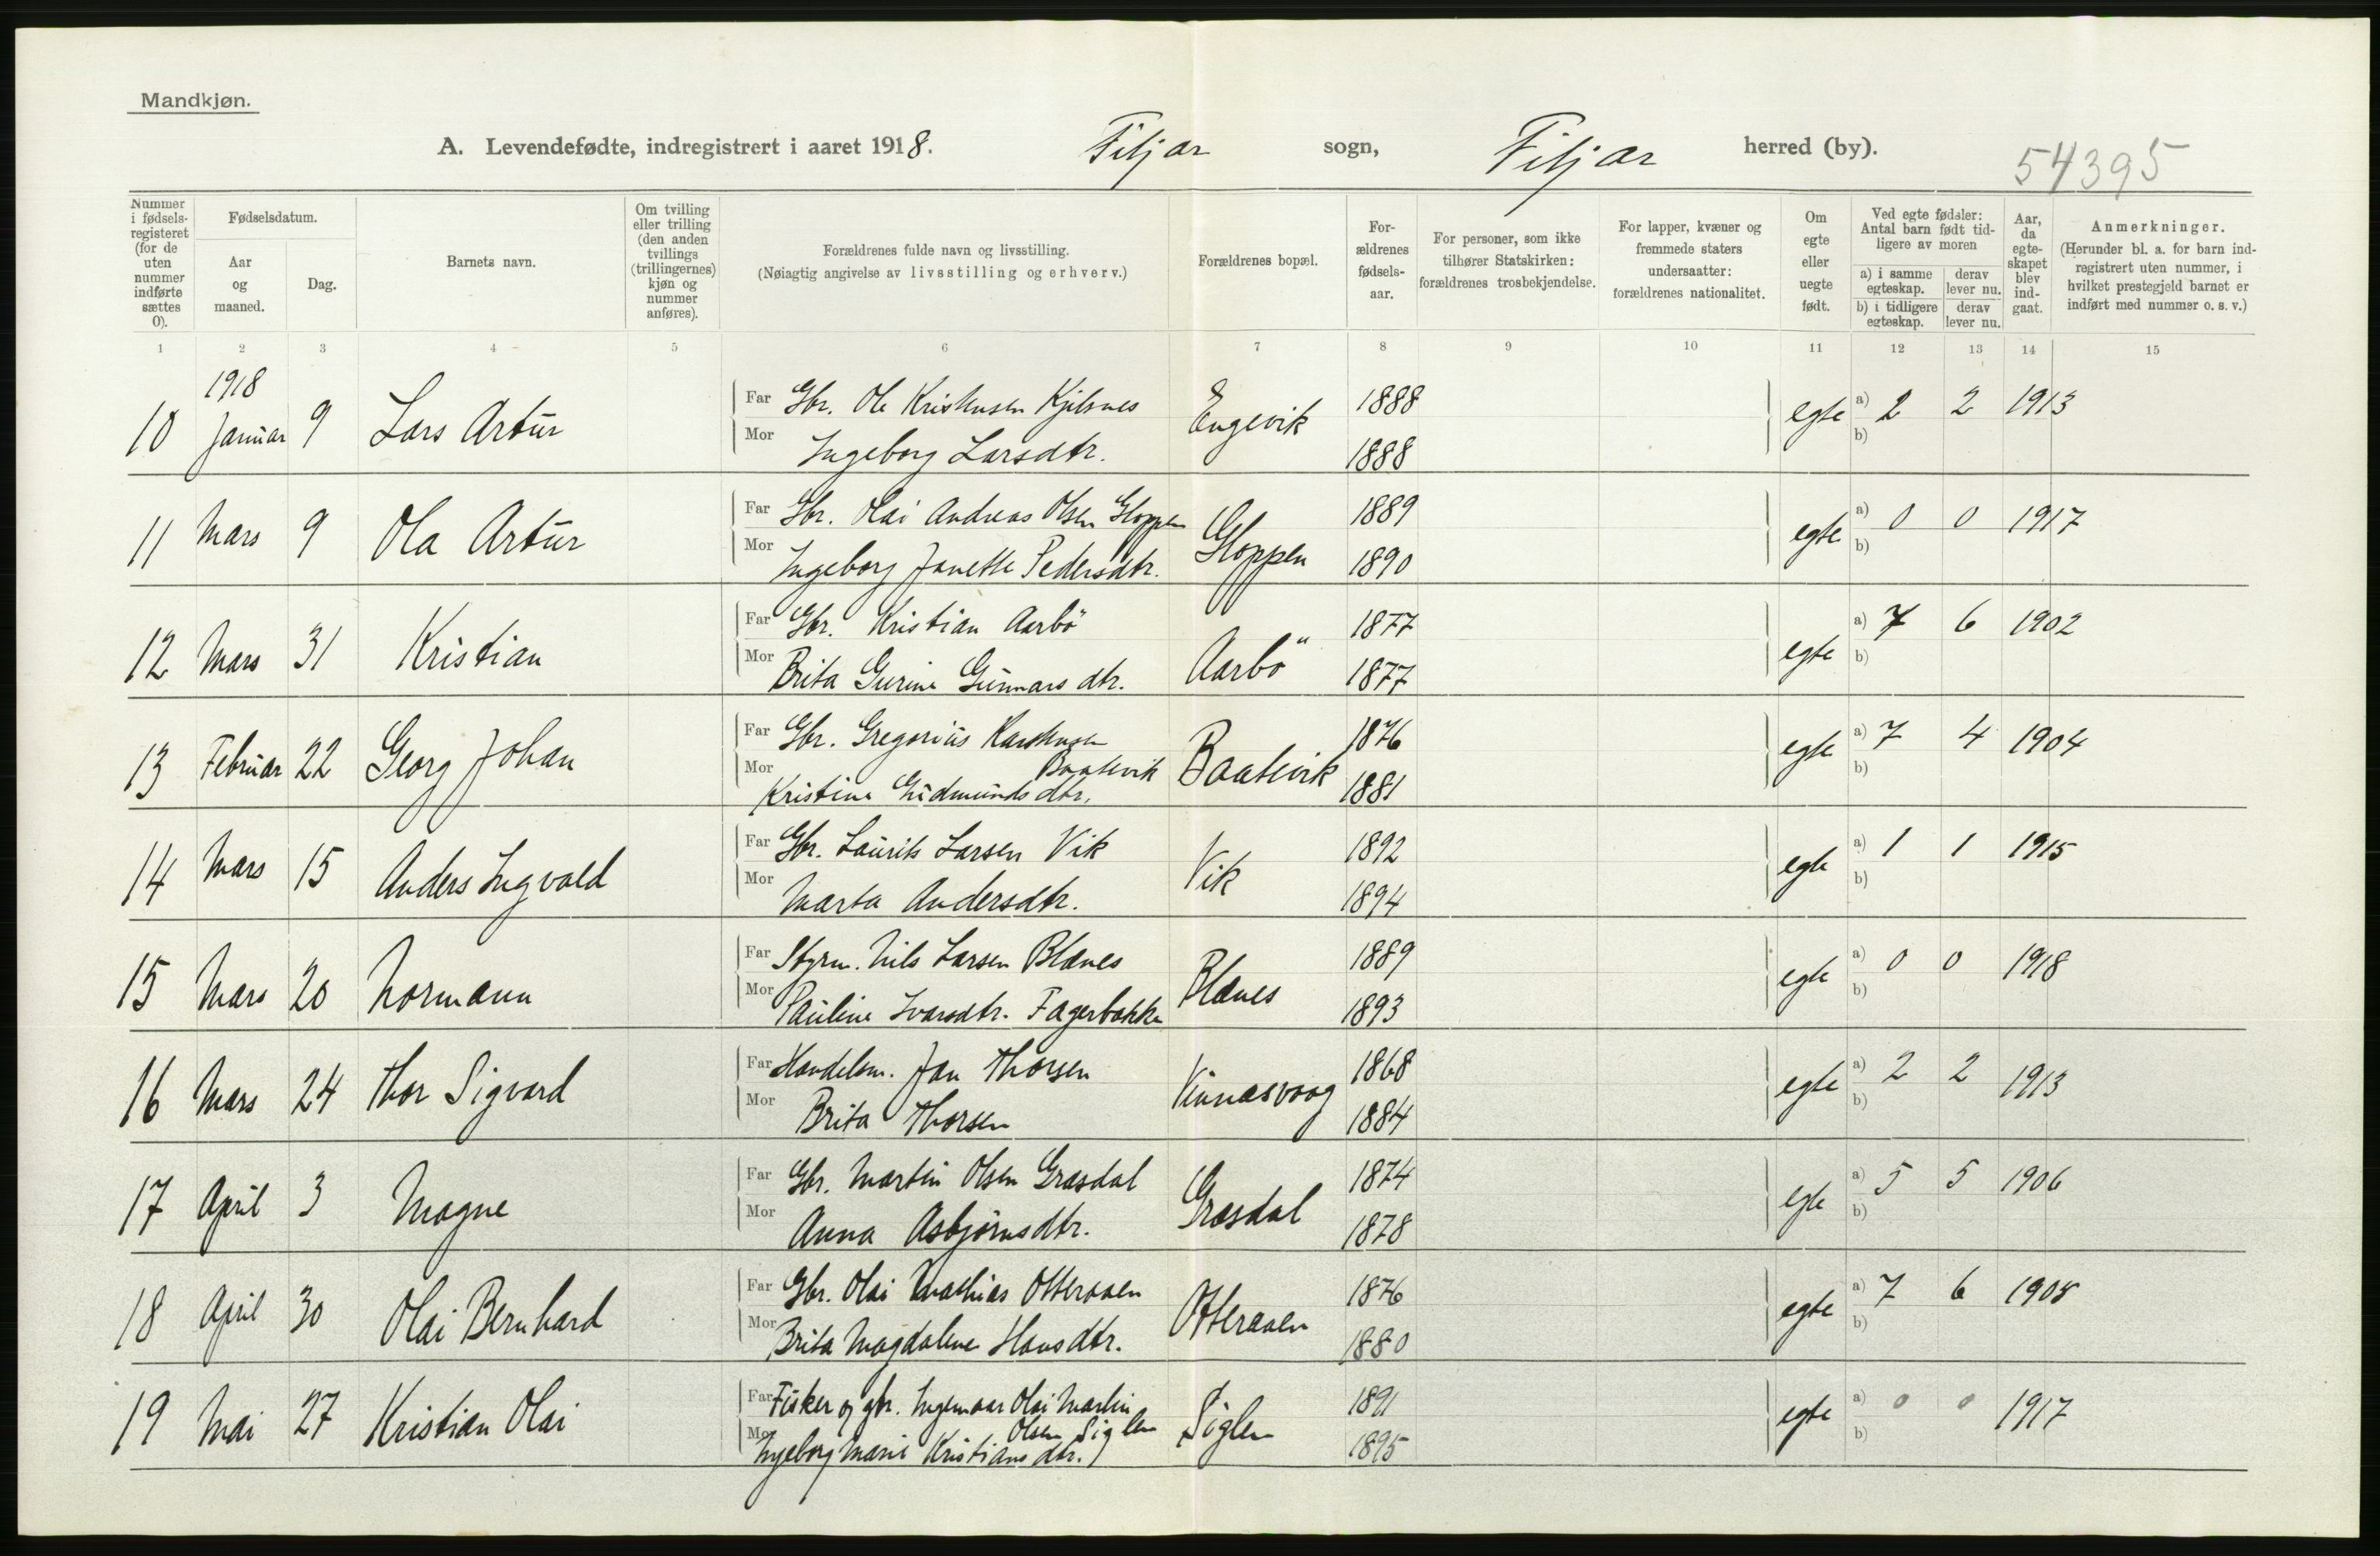 Mandkjøn.
A. Levendefødte, indregistrert i aaret 1918. Fitjar sogn, Fitjar herred (by). 54395
Nummer i fødsels-registeret (for de uten nummer indførte sættes 0).
Fødselsdatum.
Aar og maaned.
Dag.
Barnets navn.
Om tvilling eller trilling (den anden tvillings (trillingernes) kjøn og nummer anføres).
Forældrenes fulde navn og livsstilling.
(Nøiagtig angivelse av livsstilling og erhverv.)
Forældrenes bopæl.
For-ældrenes fødsels-aar.
For personer, som ikke tilhører Statskirken: forældrenes trosbekjendelse.
For lapper, kvæner og fremmede staters undersaatter: forældrenes nationalitet.
Om egte eller uegte født.
Ved egte fødsler: Antal barn født tid-ligere av moren
a) i samme egteskap. derav lever nu.
b) i tidligere egteskap. derav lever nu.
Aar, da egte-skapet blev ind-gaat.
Anmerkninger.
(Herunder bl. a. for barn ind-registrert uten nummer, i hvilket prestegjeld barnet er indført med nummer o. s. v.)
1 2 3 4 5 6 7 8 9 10 11 12 13 14 15
1918
10 Januar 9 Lars Artur Far Gbr. Ole Kristensen Engevik 1888 egte a) 2 2 1913
Mor Ingeborg Larsdtr. 1888 b)
11 Mars 9 Ola Artur Far Gbr. Olai Andreas Olsen Gloppen Gloppen 1889 egte a) 0 0 1917
Mor Ingeborg Janette Pedersdtr. 1890 b)
12 Mars 31 Kristian Far Gbr. Kristian Aarbö Aarbö 1877 egte a) 7 6 1902
Mor Brita Gurine Gunnarsdtr. 1877 b)
13 Februar 22 Georg Johan Far Gbr. Gregorius Karstensen Baatevik 1876 egte a) 7 4 1904
Baatevik
Mor Kristine Gudmundsdtr. 1881 b)
14 Mars 15 Anders Ingvald Far Gbr. Laurits Larsen Vik Vik 1892 egte a) 1 1 1915
Mor Marta Andersdtr. 1894 b)
15 Mars 20 Normann Far Styrm. Nils Larsen Blænes Blænes 1889 egte a) 0 0 1918
Mor Pauline Ivarsdtr. Fagerbakke 1893 b)
16 Mars 24 Thor Sigvard Far Handelsm. Jan Thorsen Vinnesvaag 1868 egte a) 2 2 1913
Mor Brita Thorsen 1884 b)
17 April 3 Magne Far Gbr. Martin Olsen Græsdal Græsdal 1874 egte a) 5 5 1906
Mor Anna Asbjørnsdtr. 1878 b)
18 April 30 Olai Bernhard Far Gbr. Olai Mathias Otteraaen Otteraaen 1876 egte a) 7 6 1905
Mor Brita Magdalene Hansdtr. 1880 b)
19 Mai 27 Kristian Olai Far Fisker og gbr. Ingemar Olai Martin Siglen 1891 egte a) 0 0 1917
Olsen Siglen
Mor Ingeborg Marie Kristiansdtr. 1895 b)